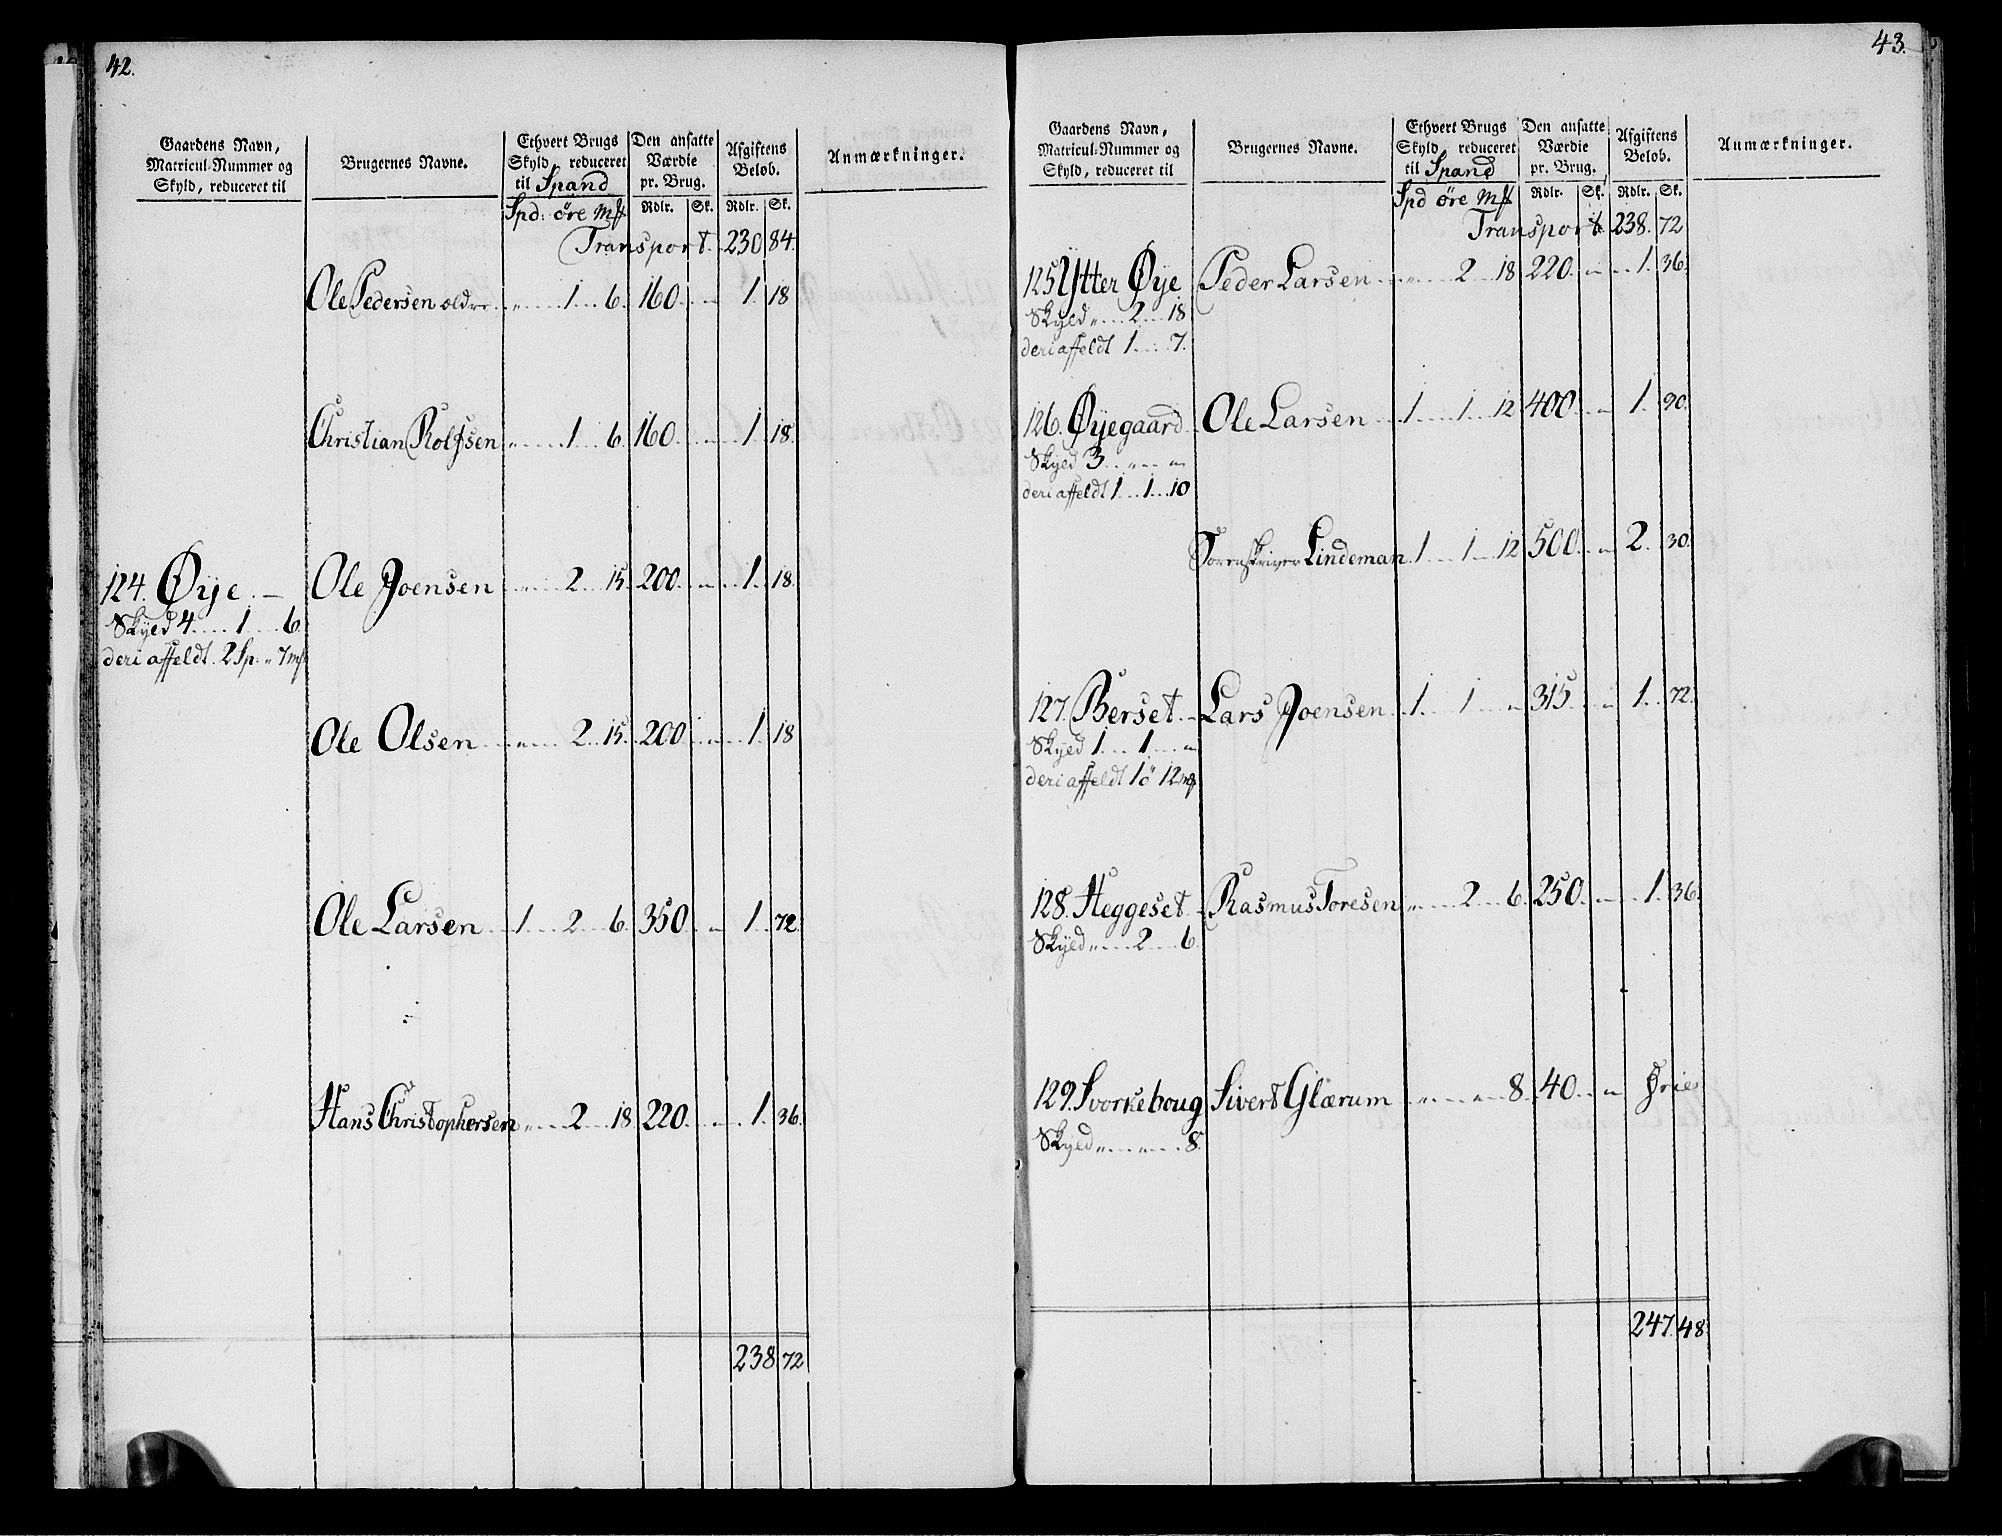 42.
Gaardens Navn, Matricul-Nummer og Skyld, reduceret til
Brugernes Navne.
Ethvert Brugs Skyld, reduceret til Spand
Den ansatte Værdie pr. Brug.
Afgiftens Beløb.
Anmærkninger.
Spd: öre Mk Rdlr. Sk. Rdlr. Sk.
Transport. 230 84.
Ole Pedersen ældre „ 1 6. 160. „ 1 18
Christian Rolfsen „ 1 6. 160. „ 1 18.
124. Øye. Ole Joensen „ 2 15. 200. „ 1. 18.
Skyld 4 1 6.
deri affeldt. 2 Sp. „ 7 mk
Ole Olsen „ 2 15. 200 „ 1 18
Ole Larsen 1 2 6. 350. „ 1 72.
Hans Christophersen „ 2 18 220. „ 1. 36.
238. 72
43.
Gaardens Navn, Matricul-Nummer og Skyld, reduceret til
Brugernes Navne.
Ethvert Brugs Skyld, reduceret til Spand
Den ansatte Værdie pr. Brug.
Afgiftens Beløb.
Anmærkninger.
Spd öre Mk Rdlr. Sk. Rdlr. Sk.
Transport 238. 72
125 Ytter Øye Peder Larsen „ 2 18 220. „ 1. 36.
Skyld „ 2 18
deri affeldt 1 7.
126. Øyegaard Ole Larsen 1 1 12 400 „ 1. 90.
Skyld 3 „ „
deri affeldt 1 1 10
Sorenskriver Lindeman 1 1 12 500 „ 2. 30.
127. Berset. Lars Joensen 1 1 „ 315. „ 1. 72.
Skyld 1 1 „
deri affeldt 1 ö 12 mk
128. Heggeset Rasmus Toresen „ 2 6. 250. „ 1. 36.
Skyld „ 2 6.
129. Svorkehoug Sivert Glærum „ „ 8. 40 „ Frie
Skyld „ „ 8.
247. 48.